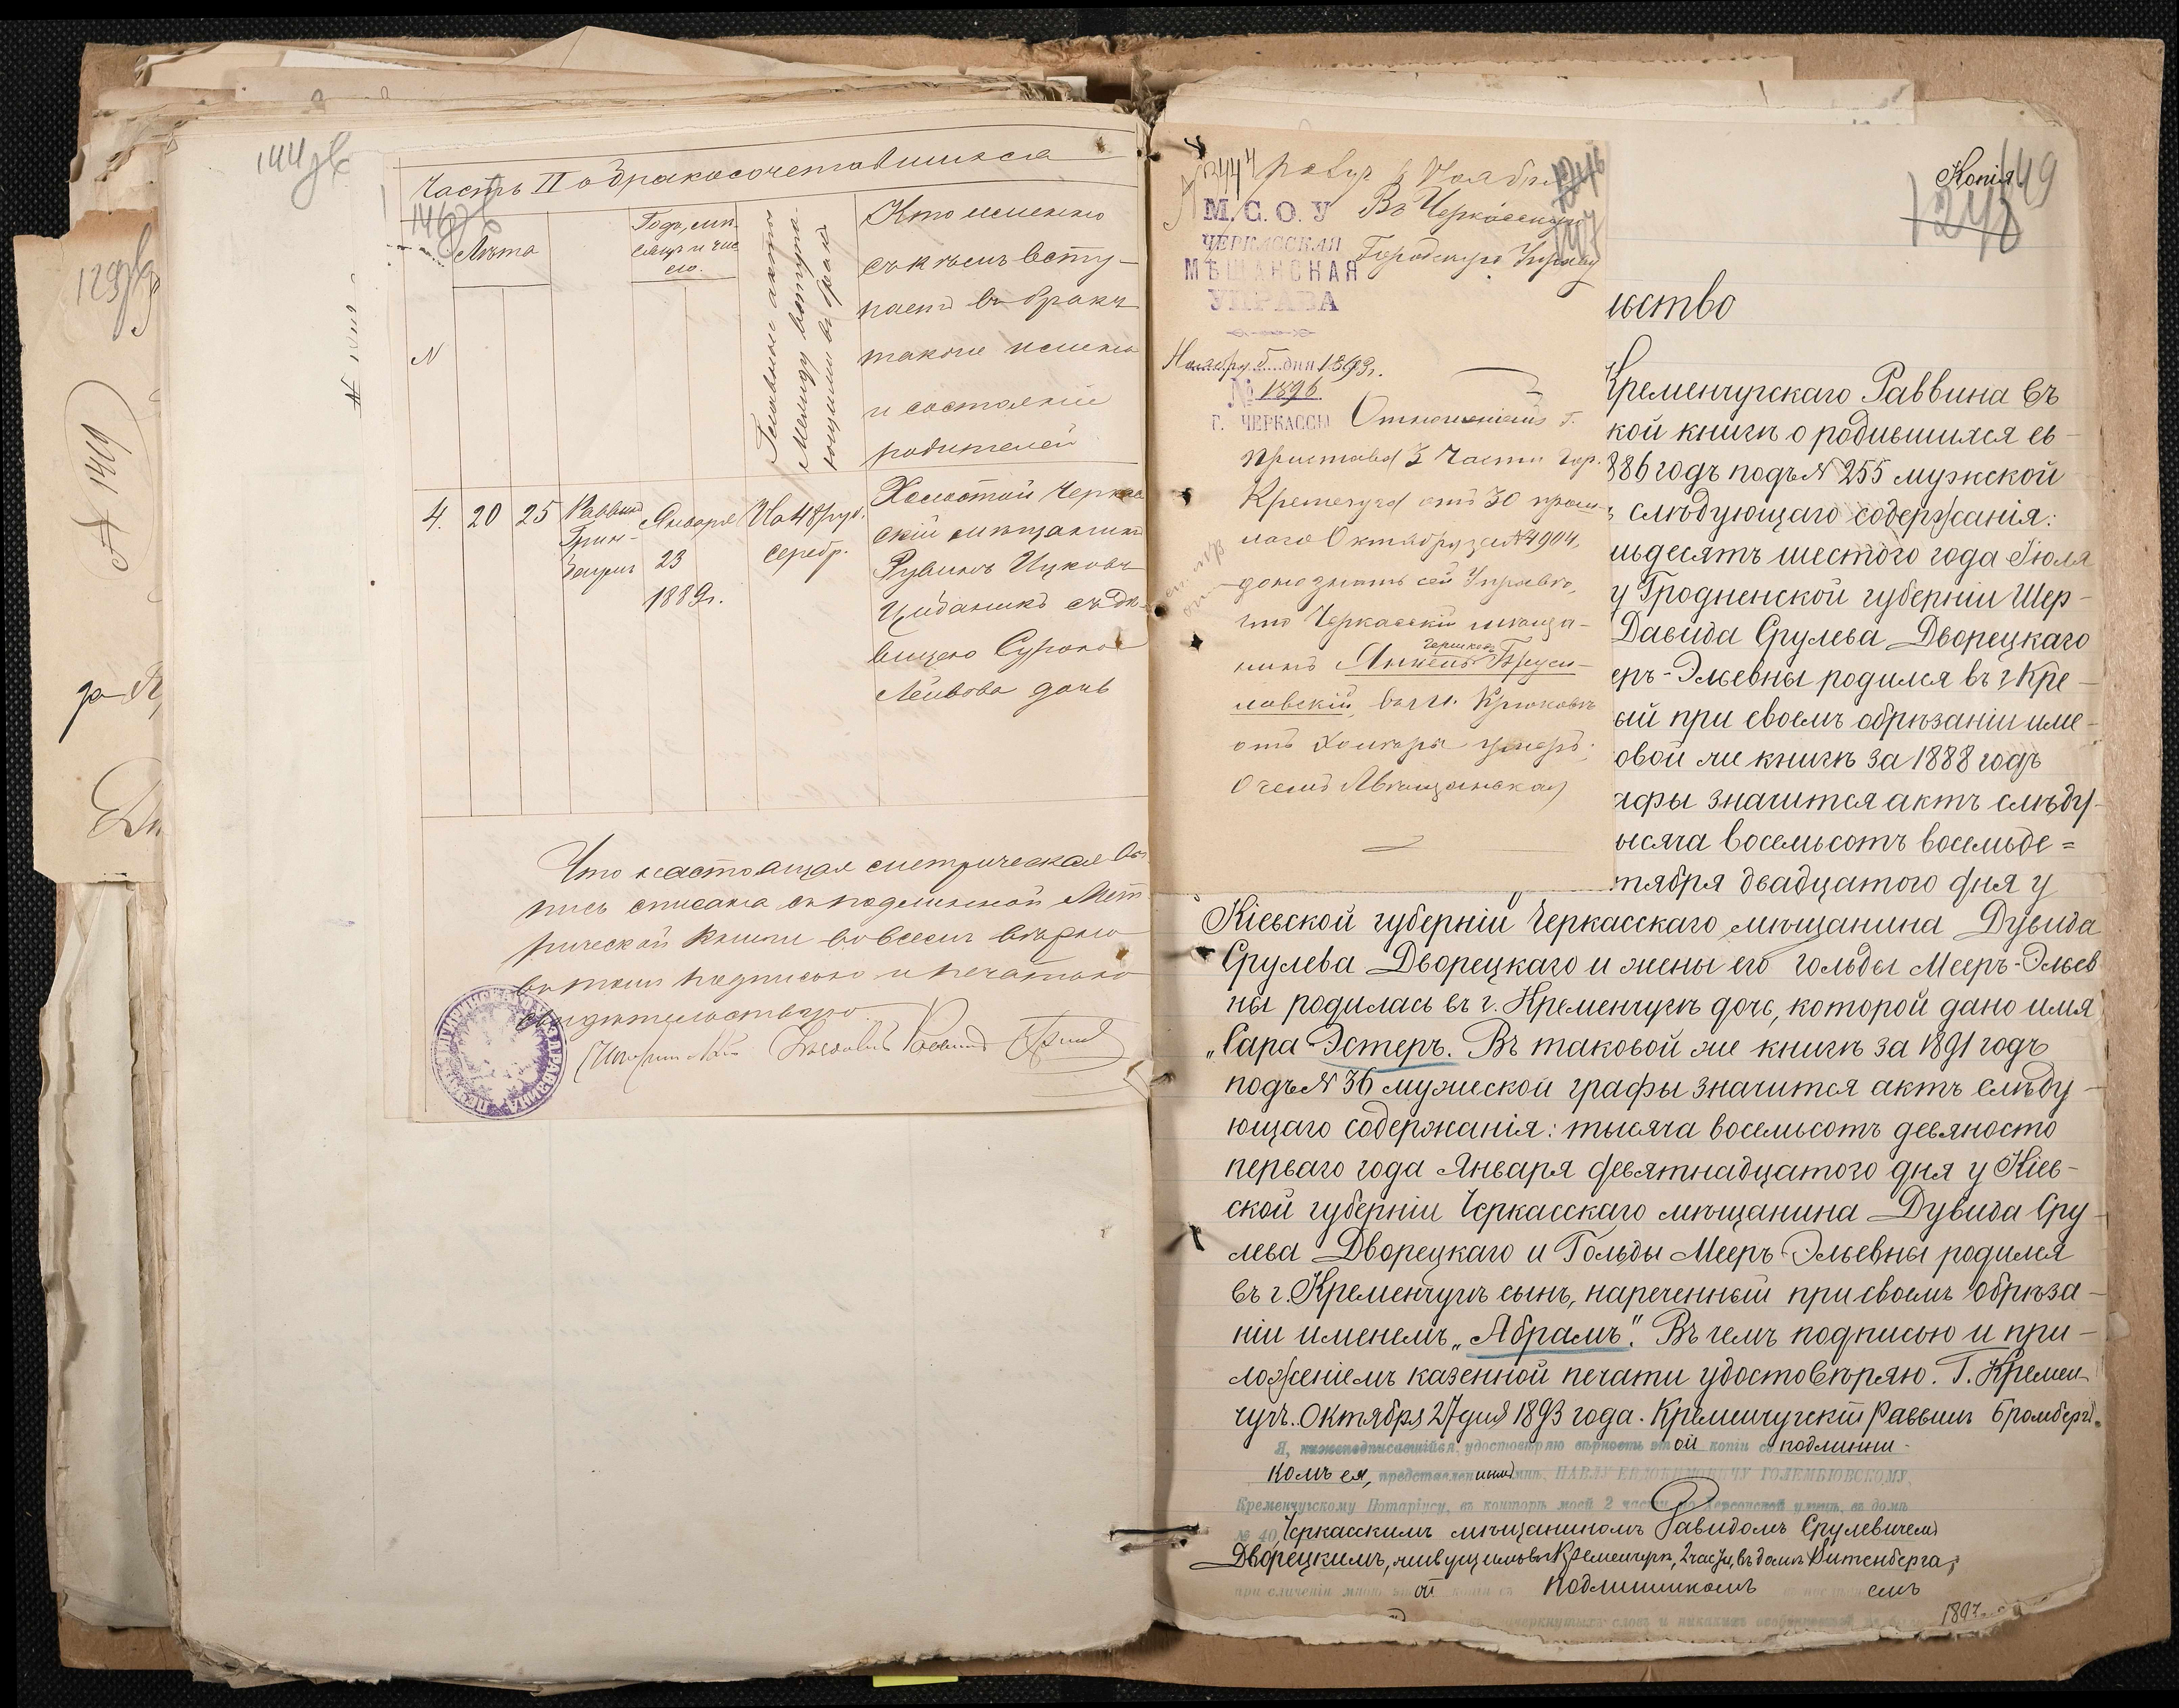 144 об
129 об
№ 149
Часть II о бракосочетавшихся
146 об
№
Лѣта
Годъ, мѣ-
сяцъ и чис
ло.
Главные акты
между вступа-
ющими въ бракъ
Кто именно
съ кѣмъ всту-
паетъ въ бракъ
также имена
и состоянiе
родителей
4. 20 25 Раввинъ Января На 48 руб. Холостой Черкас
Грин- 23 серебр. скiй мѣщанинъ
1889г. Рувинъ Ицковъ
съ дѣ-
вицею Сурою
Лейбова дочь
Что настоящая метрическая вы
пись списана съ подлинной Мет
рической книги во всемъ вѣрно
въ томъ подписью и печатью
свидѣтельствую
Раввинъ
Ноябр
М. С. О. У
ЧЕРКАССКАЯ
МѢЩАНСКАЯ
УПРАВА
Въ Черкасскую
Городскую Управу
Ноября 5 дня 1893г.
№ 1896
Г. ЧЕРКАССЫ
Отношенiемъ г.
Пристава 3 части гор.
Кременчуга отъ 30 прош-
лаго Октября за №4904,
дано знать сей Управѣ,
что Черкасскiй мѣща-
Гершковъ
нинъ Янкель Бруси-
ловскiй, въ м. Крюковѣ
отъ холеры умеръ.
О чемъ Мѣщанская
Копiя
149
1248
ьство
Кременчугскаго Раввина въ
кой книгѣ о родившихся ев-
886 годъ подъ № 255 мужской
слѣдующаго содержанiя:
ьдесятъ шестого года Iюля
у Гродненской губернiи Шер-
Давида Срулева Дворецкаго
еръ-Эльевны родился въ г. Кре-
ый при своемъ обрѣзанiи име-
овой же книгѣ за 1888 годъ
афы значится актъ слѣду-
ысяча восемьсотъ восемьде=
тября двадцатого дня у
Кiевской губернiи Черкасскаго мѣщанина Дувида
Срулева Дворецкаго и жены его Гольды Мееръ-Эльев
ны родилась въ г. Кременчугѣ дочь, которой дано имя
„Сара Эстеръ. Въ таковой же книгѣ за 1891 годъ
подъ № 36 мужской графы значится актъ слѣду-
ющаго содержанiя: тысяча восемьсотъ девяносто
перваго года Января девятнадцатого дня у Кiев-
ской губернiи Черкасскаго мѣщанина Дувида Сру-
лева Дворецкаго и Гольды Мееръ-Эльевны родился
въ г. Кременчугѣ сынъ, нареченный при своемъ обрѣза-
нiи именемъ „Абрамъ". Въ чемъ подписью и при-
ложенiемъ казенной печати удостовѣряю. Г. Кремен
чугъ. Октября 27 дня 1893 года. Кременчугскiй Раввинъ Бромбергъ.
Я, нижеподписавшiйся, удостовѣряю вѣрность этой копiи съ подлинни-
комъ ея, представленнымъ мнѣ, ПАВЛУ ЕВДОКИМОВИЧУ ГОЛЕМБIОВСКОМУ,
Кременчугскому Нотарiусу, въ конторѣ моей 2 части, по Херсонской улицѣ, въ домѣ
№ 40, Черкасскимъ мѣщаниномъ Давидомъ Срулевичемъ
Дворецкимъ, живущимъ въ Кременчугѣ, 2 части, въ домѣ Витенберга,
при сличенiи мною этой копiи съ подлинникомъ емъ
1893